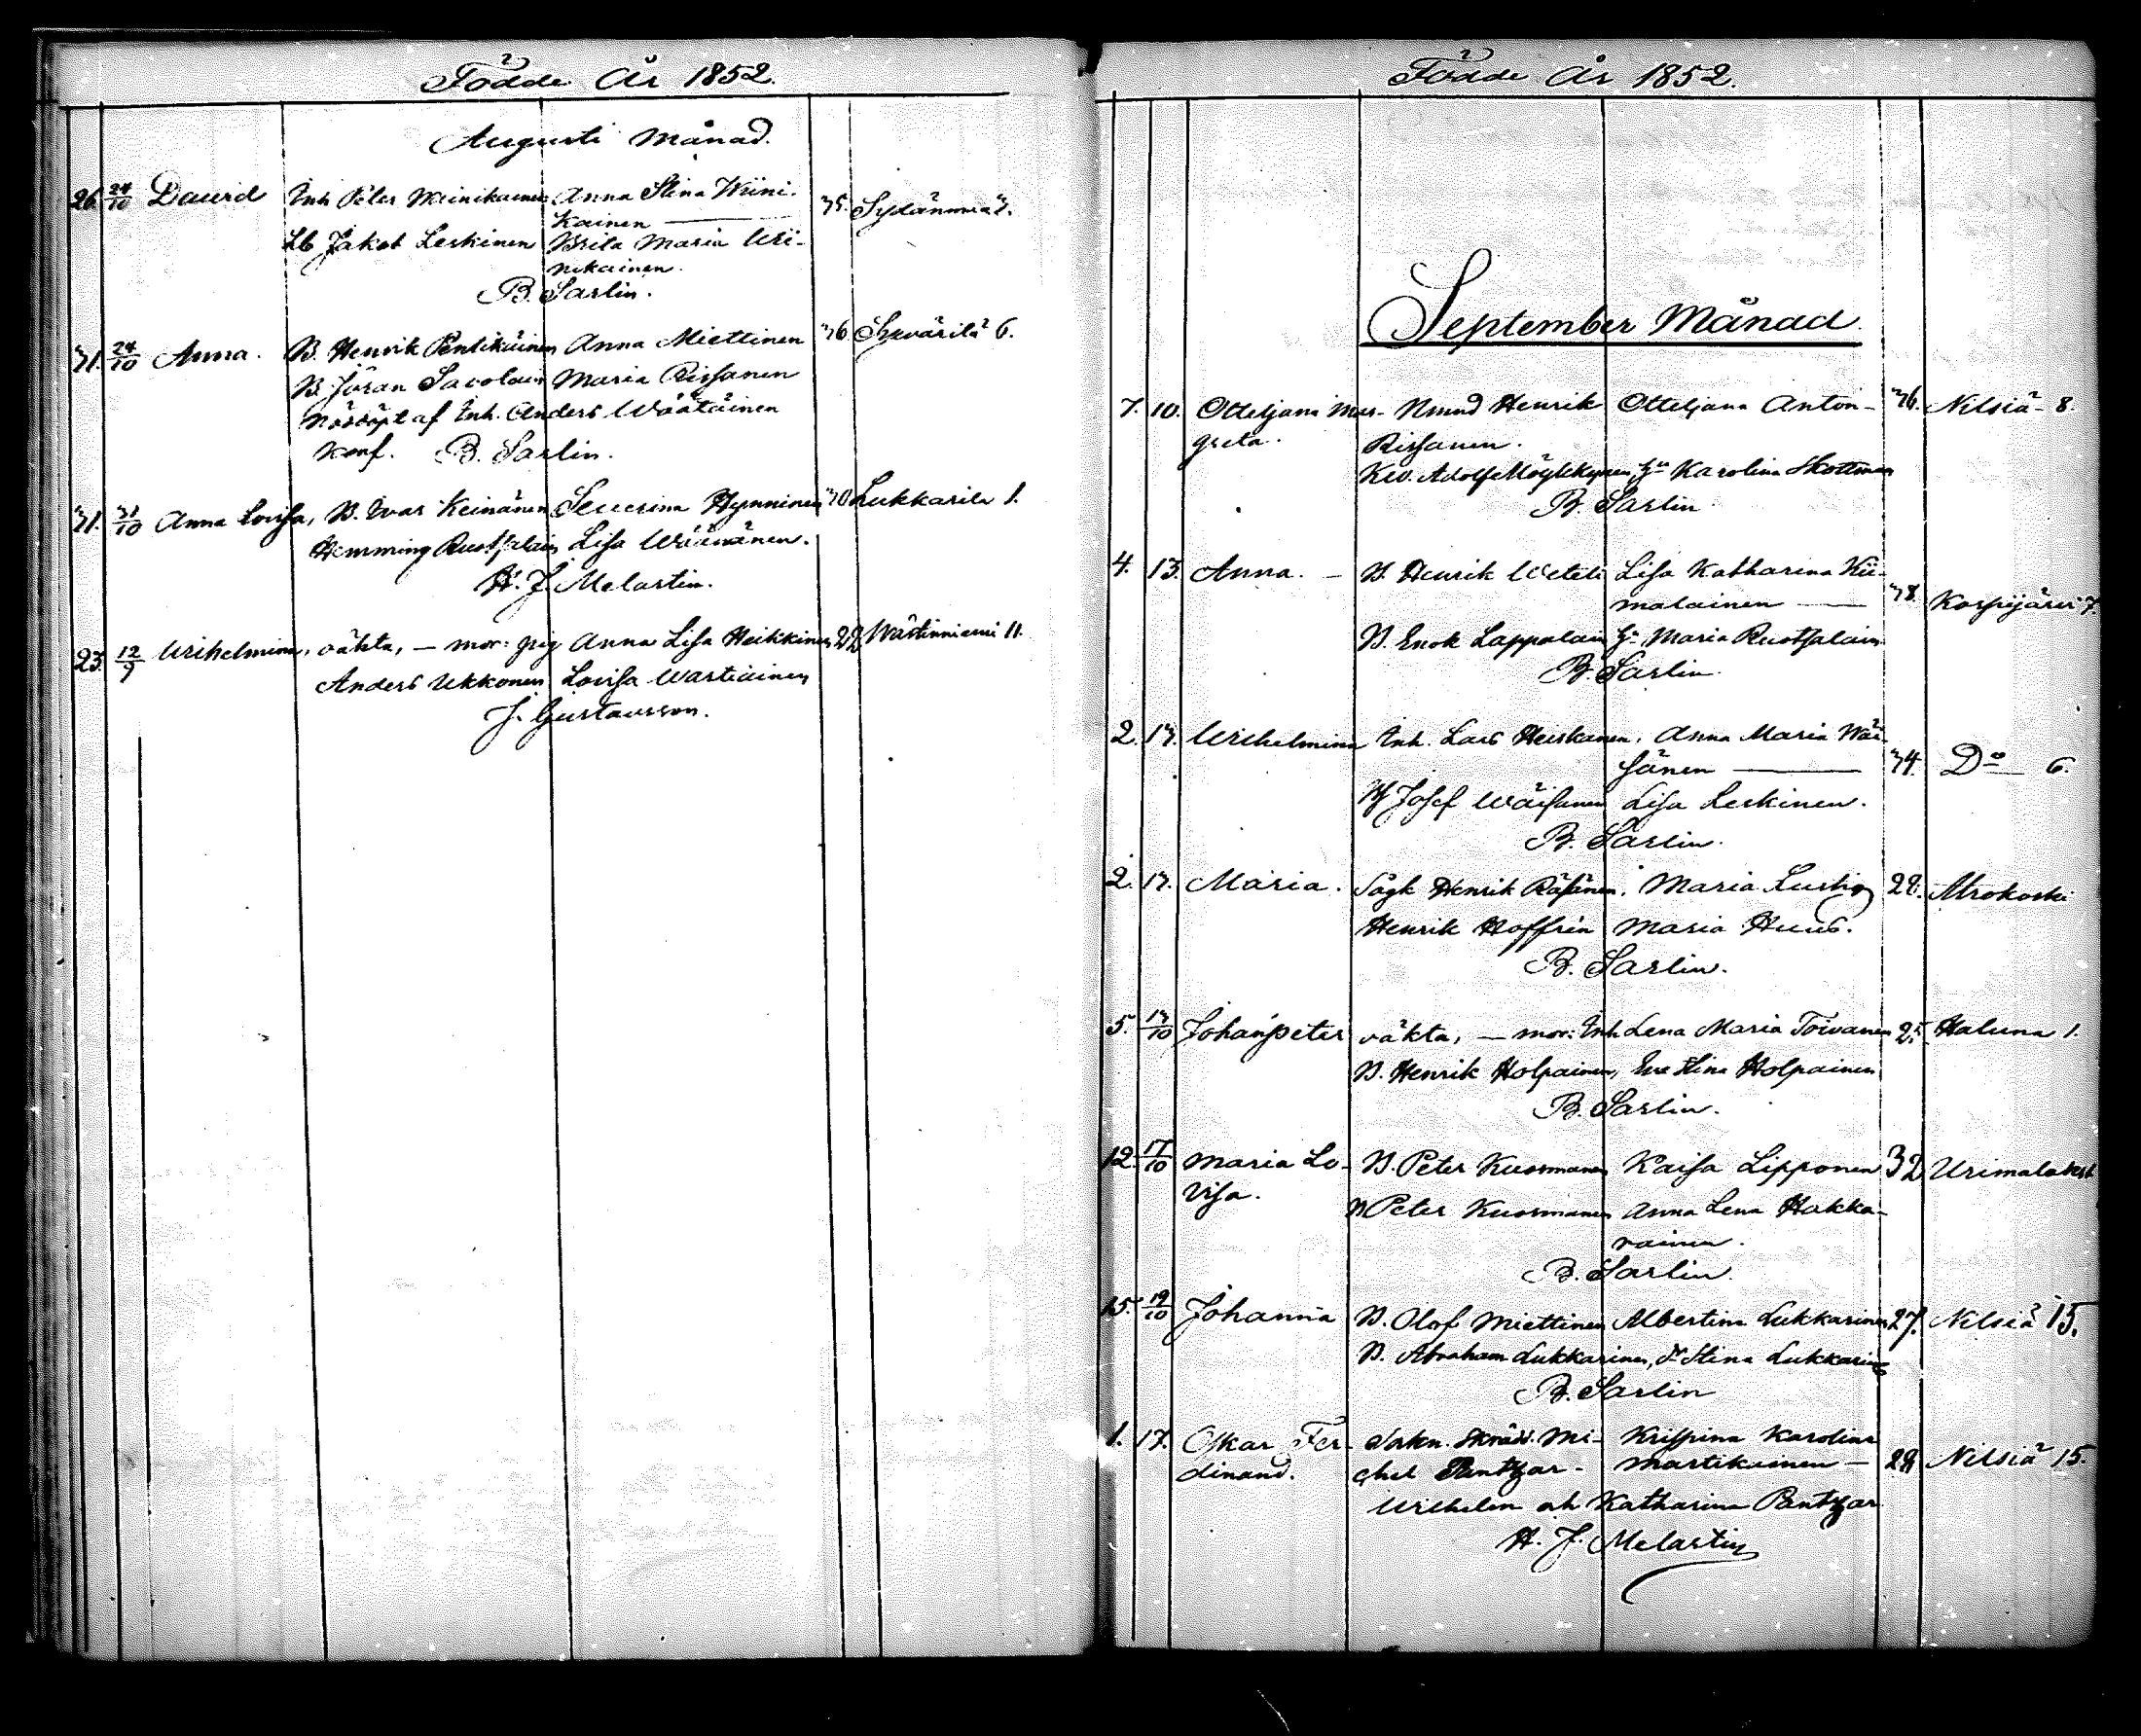 Födde År 1852.
Augusti Månad.
26. 24/10 David Inh Peter Wainikainen Anna Stina Wiini- 35. Sydänmaa 3.
kainen —
Lb Jakob Leskinen Brita Maria Wii-
nikainen.
B. Sarlin.
31. 24/10 Anna. B. Henrik Pentikäinen Anna Miettinen 36 Syvärilä 6.
B. Jöran Savolain Maria Rissanen
Nöddöpt af Inh. Anders Wäätäinen
konf. B. Sarlin.
31. 31/10 Anna Lovisa, B. Ivar Keinänen Severina Hynninen 30 Lukkarila 1.
Hemming Ruotsalain Lisa Wäänänen.
H. J. Melartin.
23. 12/9 Wilhelmina, oäkta, — mor: pig Anna Lisa Heikkinen 22 Wästinniemi 11.
Anders Ukkonen Lovisa Wartiainen
J. Gustavsson.
Födde År 1852.
September Månad.
7. 10. Otteljana Mar- Nmnd Henrik Otteljana Anton- 36. Nilsiä 8.
greta. Rissanen.
Adolf Höykkynen Hu Karolina Skottman
B. Sarlin
4. 13. Anna. — B. Henrik Weteli Lisa Katharina Kii-
malainen — 38. Korpijärvi 7.
B. Enok Lappalain Hu Maria Ruotsalain
B. Sarlin.
2. 13. Wilhelmina Inh. Lars Heiskanen, Anna Maria Wäi-
sänen — 34. Do 6.
Josef Wäisänen Lisa Leskinen.
B. Sarlin.
2. 13. Maria. Sågk Henrik Räsänen. Maria Lustig 28. Alrokoski
Henrik Hoffrén Maria Huus.
B. Sarlin.
5. 13/10 Johan Peter oäkta, — mor: Inh Lena Maria Toivanen 25. Haluna 1.
B. Henrik Holpainen, Eva Stina Holpainen
B. Sarlin.
12. 17/10 Maria Lo- B. Peter Kuosmanen Kaisa Lipponen 32
visa. B Peter Kuosmanen Anna Lena Hakka-
rainen.
B. Sarlin.
15. 19/10 Johanna B. Olof Miettinen Albertina Lukkarinen 27. Nilsiä 15.
B. Abraham Lukkarinen, Stina Lukkarin
B. Sarlin
1. 17. Oskar Fer- Sokn. Skräd. Mi- Krispina Karolina
dinand. chel Pantzar- Martikainen — 29 Nilsiä 15.
Wilhelm och Katharina Pantzar
H. J. Melartin